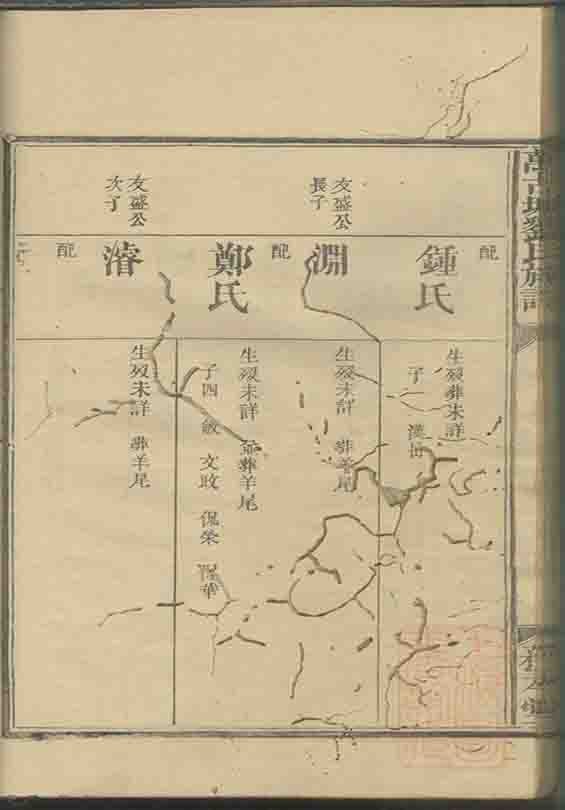 劉氏族譜
配
鍾氏
生歿葬未詳
子
漢
友盛公
長子
淵
生歿未詳 葬羊尾
配
鄭氏
生歿未詳 並葬羊尾
子四 敏 文政 侃榮 華
友盛公
次子
濬
生歿未詳 葬羊尾
配